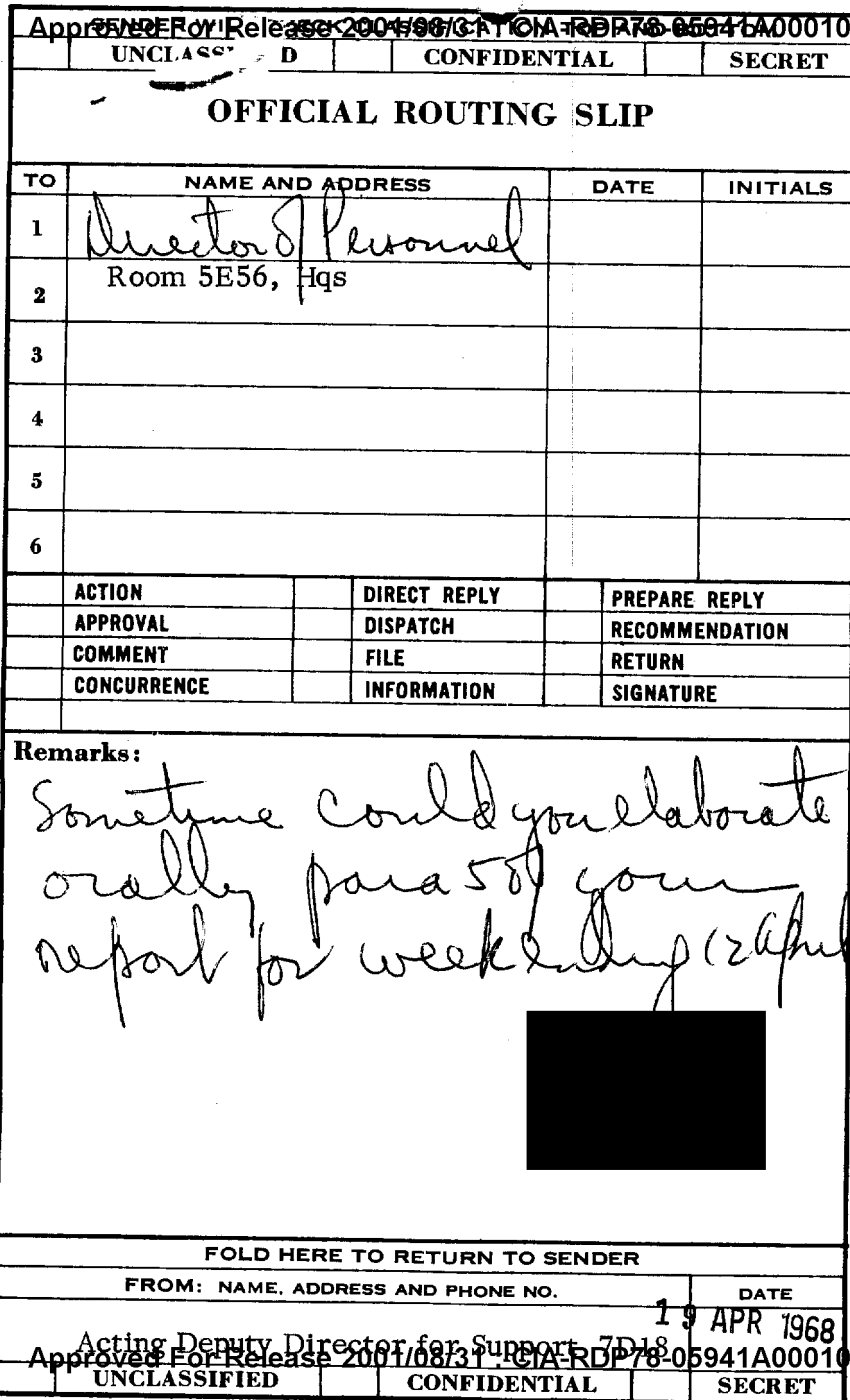 Approved For Release 2001/08/31 : CIA-RDP78-05941A00010
SENDER WILL CHECK CLASSIFICATION TOP AND BOTTOM
UNCLASS D CONFIDENTIAL SECRET
OFFICIAL ROUTING SLIP
TO NAME AND ADDRESS DATE INITIALS
1 Director of Personnel
Room 5E56, Hqs
2
3
4
5
6
ACTION DIRECT REPLY PREPARE REPLY
APPROVAL DISPATCH RECOMMENDATION
COMMENT FILE RETURN
CONCURRENCE INFORMATION SIGNATURE
Remarks:
Sometime could you elaborate
orally para 5 of your
report for week ending 12 April
FOLD HERE TO RETURN TO SENDER
FROM: NAME, ADDRESS AND PHONE NO. DATE
19 APR 1968
Acting Deputy Director for Support, 7D18
Approved For Release 2001/08/31 : CIA-RDP78-05941A00010
UNCLASSIFIED CONFIDENTIAL SECRET